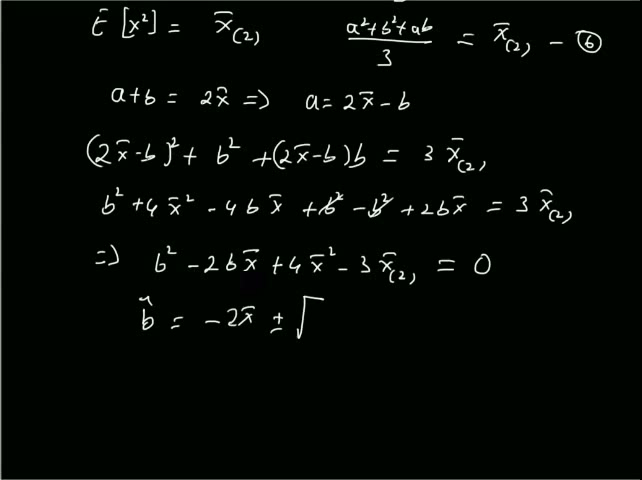 E [x²] = x̄₍₂₎   (a²+b²+ab)/3 = x̄₍₂₎ - ⑥
a+b = 2x̄ => a = 2x̄ - b
(2x̄-b)² + b² + (2x̄-b)b = 3 x̄₍₂₎
b² + 4x̄² - 4bx̄ + b² - b² + 2bx̄ = 3 x̄₍₂₎
=> b² - 2bx̄ + 4x̄² - 3x̄₍₂₎ = 0
b̂ = -2x̄ ± √